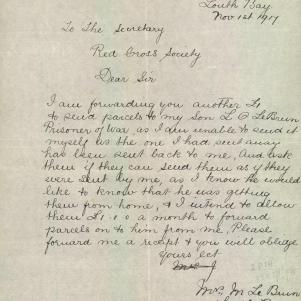 Louth Bay
Nov 1st 1917
To The Secretary
Red Cross Society
Dear Sir
I am forwarding you another £1
to send parcels to my Son L O LeBrun
Prisoner of War as I am unable to send it
myself as the one I had sent away
has been sent back to me, and ask
them if they can send them as if they
were sent by me, as I know he would
like to know that he was getting
them from home, & I intend to allow
them £1.0.0 a month to forward
parcels on to him from me, Please
forward me a receipt & you will oblige
Yours ect
Mrs J
Mrs. M Le Brun